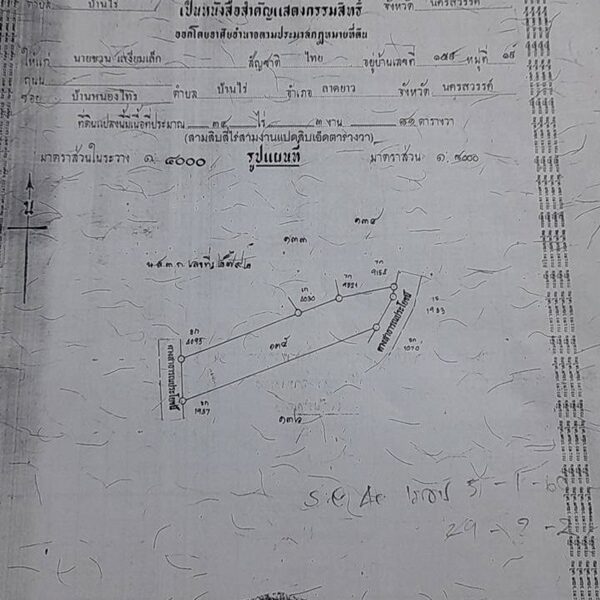 ตำบล บ้านไร่ จังหวัด นครสวรรค์
เป็นหนังสือสำคัญแสดงกรรมสิทธิ์
ออกโดยอาศัยอำนาจตามประมวลกฎหมายที่ดิน
ให้แก่ นายชวน เสงี่ยมเล็ก สัญชาติ ไทย อยู่บ้านเลขที่ ๑๕๕ หมู่ที่ ๑๕
ถนน
ซอย บ้านหนองไทร ตำบล บ้านไร่ อำเภอ ลาดยาว จังหวัด นครสวรรค์
ที่ดินแปลงนี้มีเนื้อที่ประมาณ ๓๔ ไร่ ๓ งาน ๘๑ ตารางวา
(สามสิบสี่ไร่สามงานแปดสิบเอ็ดตารางวา)
มาตราส่วนในระวาง ๑: ๔๐๐๐ รูปแผนที่ มาตราส่วน ๑:
น
๑๓๔
๑๓๓
น.ส.๓ ก. เลขที่
4030
4095
1983
1070
ทางสาธารณประโยชน์
ทางสาธารณประโยชน์
๑๓๕
1937
๑๓๖